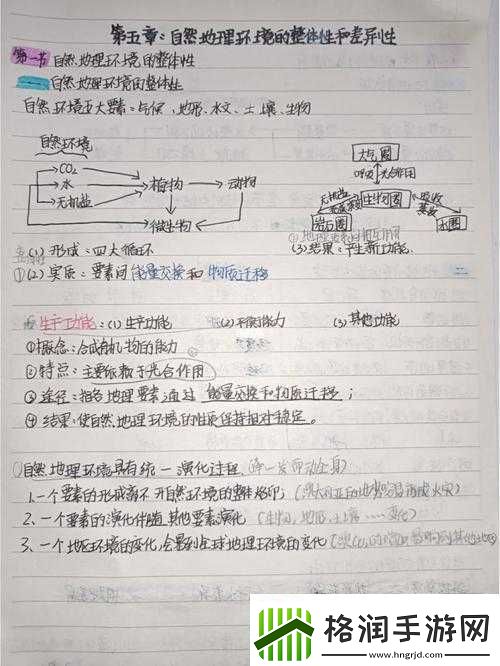 第五章:自然地理环境的整体性和差异性
第一节 自然地理环境的整体性
一 自然地理环境的整体性
自然环境五大要素:气候、地形、水文、土壤、生物
自然环境
CO2
水
无机盐
植物
动物
微生物
大气圈
呼吸 光合作用
无机盐
生物圈
吸收
蒸腾
岩石圈
水圈
(1) 形成:四大循环
(3)结果:产生新功能.
①(2) 实质:要素间能量交换和物质迁移
生产功能:(1)生产功能 (2)平衡能力 (3)其他功能
①概念:合成有机物的能力
②特点:主要依赖于光合作用
③途径:相各地理要素通过能量交换和物质迁移;
④结果:使自然地理环境的性质保持相对稳定。
自然地理环境具有统一演化过程 (牵一发而动全身)
1.一个要素的形成离不开自然环境的整体烙印;
2.一个要素的演化伴随其他要素演化(生物、地形、土壤……变化)
3.一个地区环境的变化,会影响到全球地理环境的变化
格润手游网
www.hngrjd.com